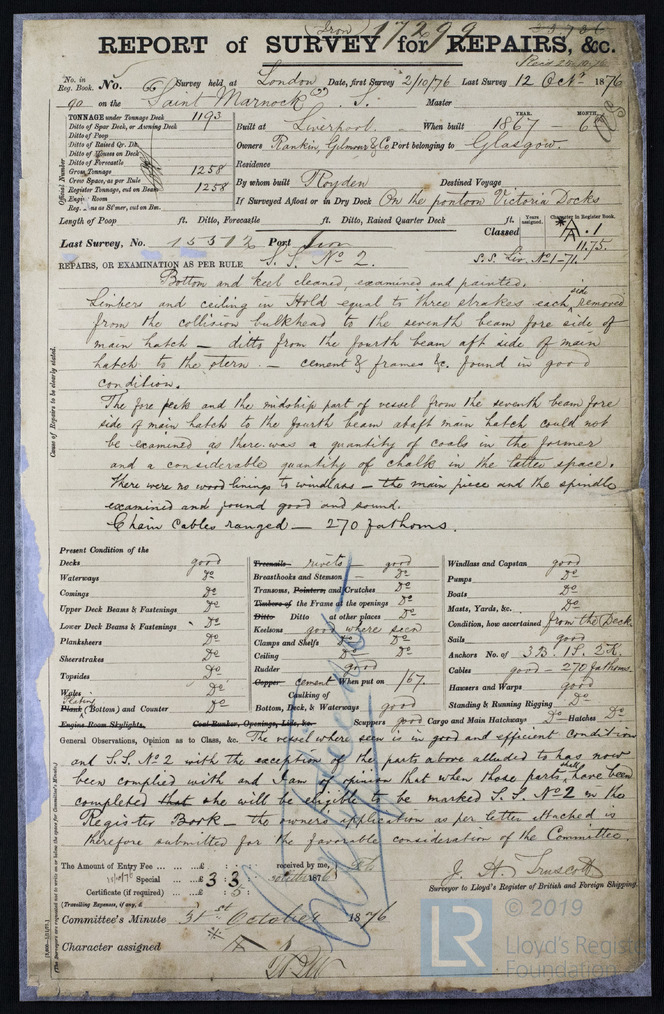 (Iron) 17299
REPORT of SURVEY for REPAIRS, &c.
No. in Reg. Book. No. Survey held at London Date, first Survey 2/10/76 Last Survey 12 Octr. 1876
90 on the Saint Marnock S. Master
TONNAGE under Tonnage Deck 1193
Ditto of Spar Deck, or Awning Deck
Ditto of Poop
Ditto of Raised Qr. Dk.
Ditto of Houses on Deck
Ditto of Forecastle
Gross Tonnage 1258
Crew Space, as per Rule
Register Tonnage, cut on Beam 1258
Engine Room
Reg. Tons as St'mer, cut on Bm.
Official Number
YEAR. MONTH.
Built at Liverpool. When built 1867 6
Owners Rankin, Gilmour & Co Port belonging to Glasgow.
Residence
By whom built Royden Destined Voyage
If Surveyed Afloat or in Dry Dock On the pontoon Victoria Docks
Length of Poop ft. Ditto, Forecastle ft. Ditto, Raised Quarter Deck ft. Years assigned. Character in Register Book.
Last Survey, No. 15512 Port Lon Classed A.1
11.75
REPAIRS, OR EXAMINATION AS PER RULE S.S. No 2. S.S. Liv. No1-71.
Bottom and keel cleaned, examined and painted.
Limbers and ceiling in Hold equal to three strakes each side removed
from the collision bulkhead to the seventh beam fore side of
main hatch — ditto from the fourth beam aft side of main
hatch to the stern. — cement & frames &c. found in good
condition.
The fore peak and the midship part of vessel from the seventh beam fore
side of main hatch to the fourth beam abaft main hatch could not
be examined as there was a quantity of coals in the former
and a considerable quantity of chalk in the latter space.
There were no wood linings to windlass — the main piece and the spindle
examined and found good and sound.
Chain Cables ranged — 270 fathoms.
Cause of Repairs to be clearly stated.
Present Condition of the
Decks good
Waterways Do
Comings Do
Upper Deck Beams & Fastenings Do
Lower Deck Beams & Fastenings Do
Planksheers Do
Sheerstrakes Do
Topsides Do
Wales Do
Plank Plating (Bottom) and Counter Do
Engine Room Skylights, Coal Bunker, Openings, Lids, &c.
Treenails rivets good
Breasthooks and Stemson Do
Transoms, Pointers, and Crutches Do
Timbers of the Frame at the openings Do
Ditto Ditto at other places Do
Keelsons good where seen
Clamps and Shelfs Do Do
Ceiling Do Do
Rudder good
Copper cement When put on /67.
Caulking of
Bottom, Deck, & Waterways good
Scuppers good Cargo and Main Hatchways Do Hatches Do
Windlass and Capstan good
Pumps Do
Boats Do
Masts, Yards, &c. Do
Condition, how ascertained from the Deck
Sails good
Anchors No. of 3 B. 1 S. 2 K.
Cables good — 270 fathoms.
Hawsers and Warps good
Standing & Running Rigging Do
General Observations, Opinion as to Class, &c. The vessel where seen is in good and efficient condition
and S.S. No 2 with the exception of the parts above alluded to has now
been complied with and I am of opinion that when those parts shall have been
completed that she will be eligible to be marked S.S. No 2 in the
Register Book — the owners application as per letter attached is
therefore submitted for the favorable consideration of the Committee.
The Amount of Entry Fee ... £ : : received by me,
Special ... £ 3 : 3 : 1876
Certificate (if required) ... £ : 5 :
(Travelling Expenses, if any, £
J. A. Truscott
Surveyor to Lloyd's Register of British and Foreign Shipping.
Committee's Minute 31st October 1876
Character assigned
© 2019
LR
Lloyd's Register
Foundation